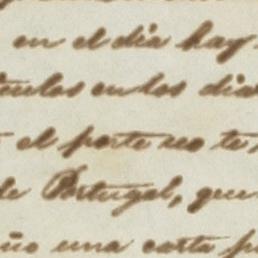 en el dia hay
en los dia
el porte no te
de Portugal, que
una carta p